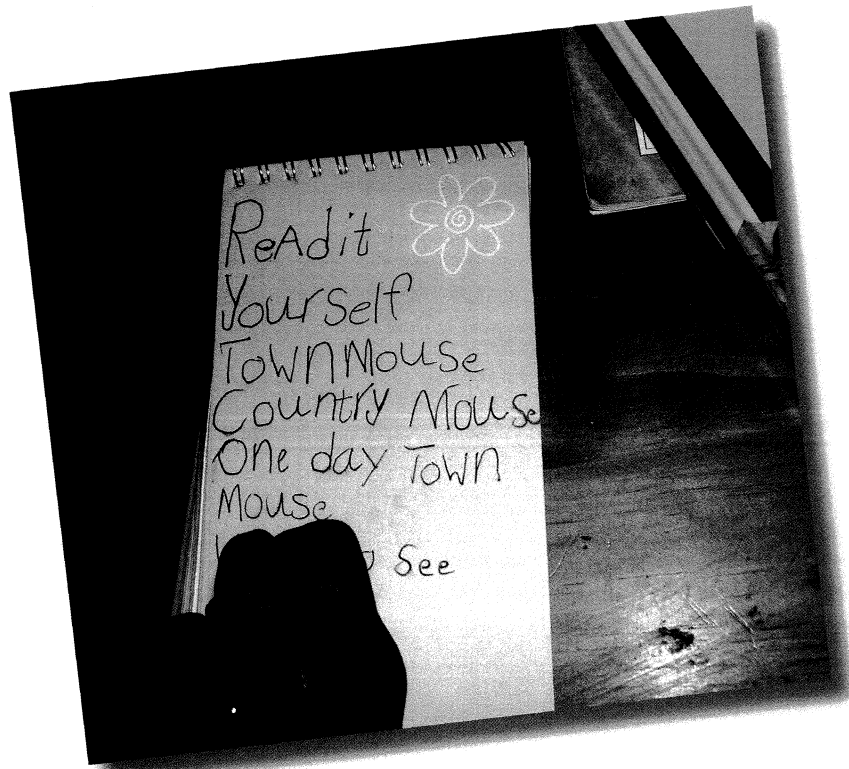 ReAd it
Yourself
TownMouse
Country Mouse
One day Town
Mouse
See